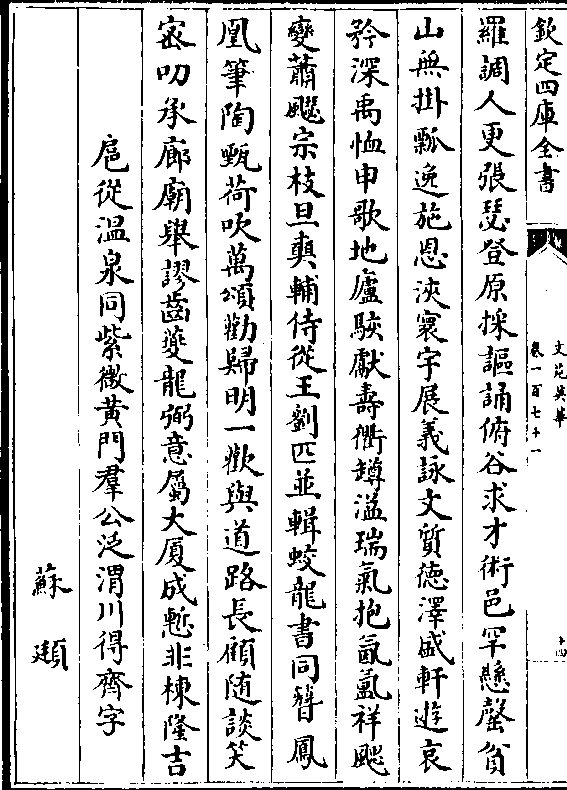 欽定四庫全書
文苑英華
卷一百七十一
十四
羅調人更張瑟登原採謳誦俯谷求才術邑罕懸罄貧
山無掛瓢逸施恩浹寰宇展義詠文質德澤盛軒遊哀
矜深禹恤申歌地廬駭獻壽衢罇溢瑞氣抱氤氳祥飈
變蕭颸宗枝旦奭輔侍從王劉匹並輯蛟龍書同簪鳳
凰筆陶甄荷吹萬頌勸歸明一歡與道路長顧随談笑
宻叨承廊廟舉謬齒夔龍弼意屬大厦成慙非棟隆吉
扈從温泉同紫微黄門羣公泛渭川得齊字
蘇頲